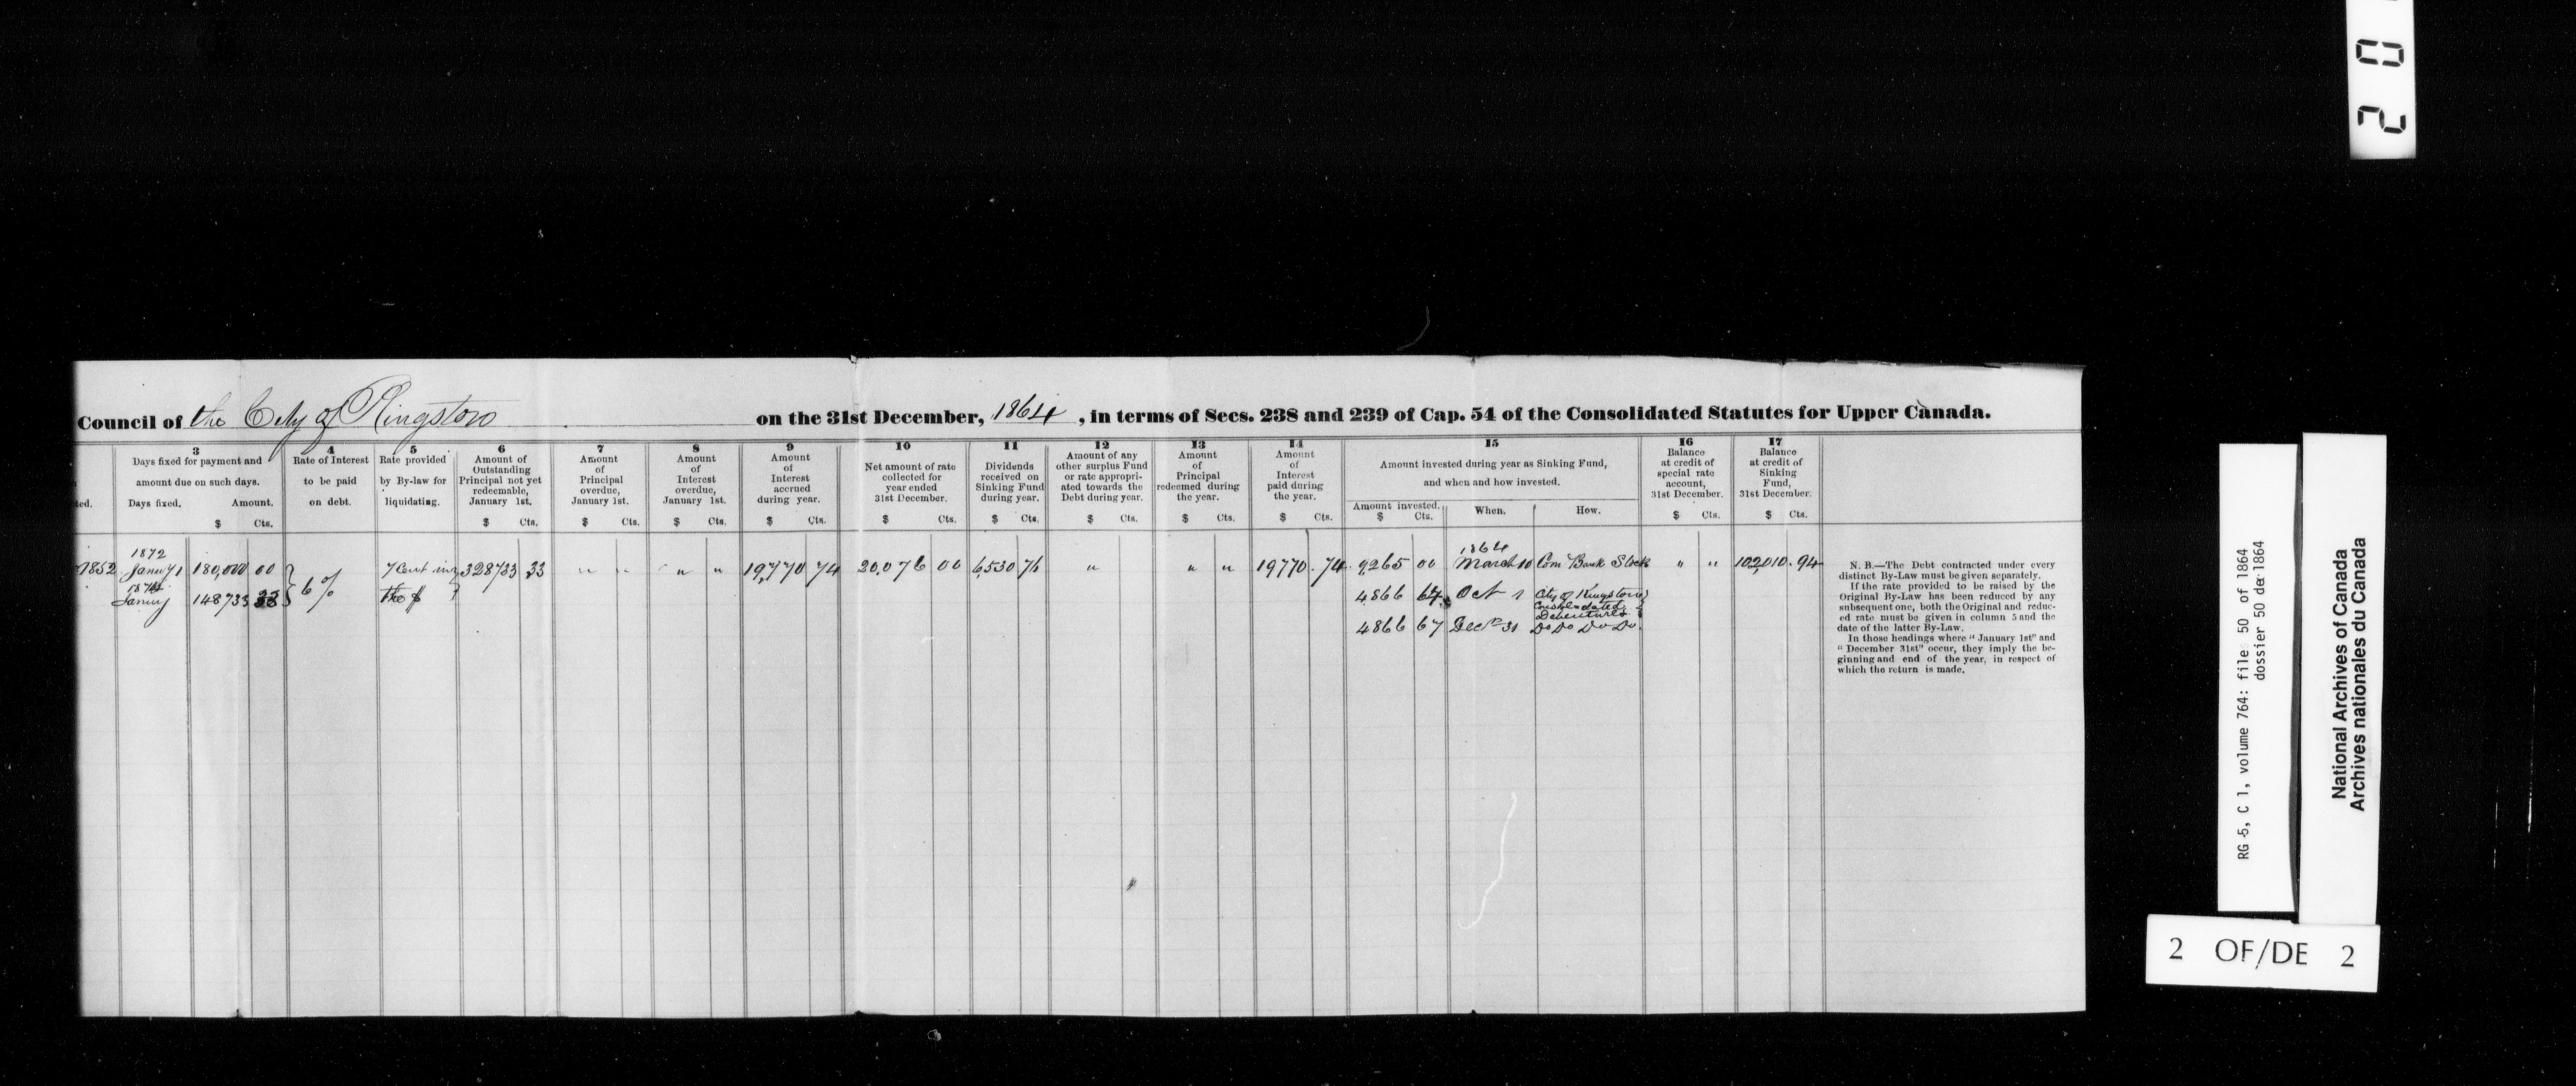 Council of the City of Kingston on the 31st December, 1864, in terms of Secs. 238 and 239 of Cap. 54 of the Consolidated Statutes for Upper Canada.
ted.
3
Days fixed for payment and
amount due on such days.
Days fixed. Amount.
$ Cts.
4
Rate of Interest
to be paid
on debt.
5
Rate provided
by By-law for
liquidating.
6
Amount of
Outstanding
Principal not yet
redeemable,
January 1st.
$ Cts.
7
Amount
of
Principal
overdue,
January 1st.
$ Cts.
8
Amount
of
Interest
overdue,
January 1st.
$ Cts.
9
Amount
of
Interest
accrued
during year.
$ Cts.
10
Net amount of rate
collected for
year ended
31st December.
$ Cts.
11
Dividends
received on
Sinking Fund
during year.
$ Cts.
12
Amount of any
other surplus Fund
or rate appropri-
ated towards the
Debt during year.
$ Cts.
13
Amount
of
Principal
redeemed during
the year.
$ Cts.
14
Amount
of
Interest
paid during
the year.
$ Cts.
15
Amount invested during year as Sinking Fund,
and when and how invested.
Amount invested. When. How.
$ Cts.
16
Balance
at credit of
special rate
account,
31st December.
$ Cts.
17
Balance
at credit of
Sinking
Fund,
31st December.
$ Cts.
1872 1864
1852 Januy 1 180,000 00 6% 7 Cent in 328733 33 " " " " 19,770 74 20,076 00 6,530 76 " " " 19770.74 9,265 00 March 10 Com Bank Stock " " 102,010.94
1874
Januy 148733 33 the $ 4866 67 Oct 1 City of Kingston
Consolidated
Debentures
4866 67 Decr 31 Do Do Do Do.
N. B.—The Debt contracted under every
distinct By-Law must be given separately.
If the rate provided to be raised by the
Original By-Law has been reduced by any
subsequent one, both the Original and reduc-
ed rate must be given in column 5 and the
date of the latter By-Law.
In those headings where "January 1st" and
"December 31st" occur, they imply the be-
ginning and end of the year, in respect of
which the return is made.
2 0
RG 5, C 1, volume 764: file 50 of 1864
dossier 50 de 1864
National Archives of Canada
Archives nationales du Canada
2 OF/DE 2